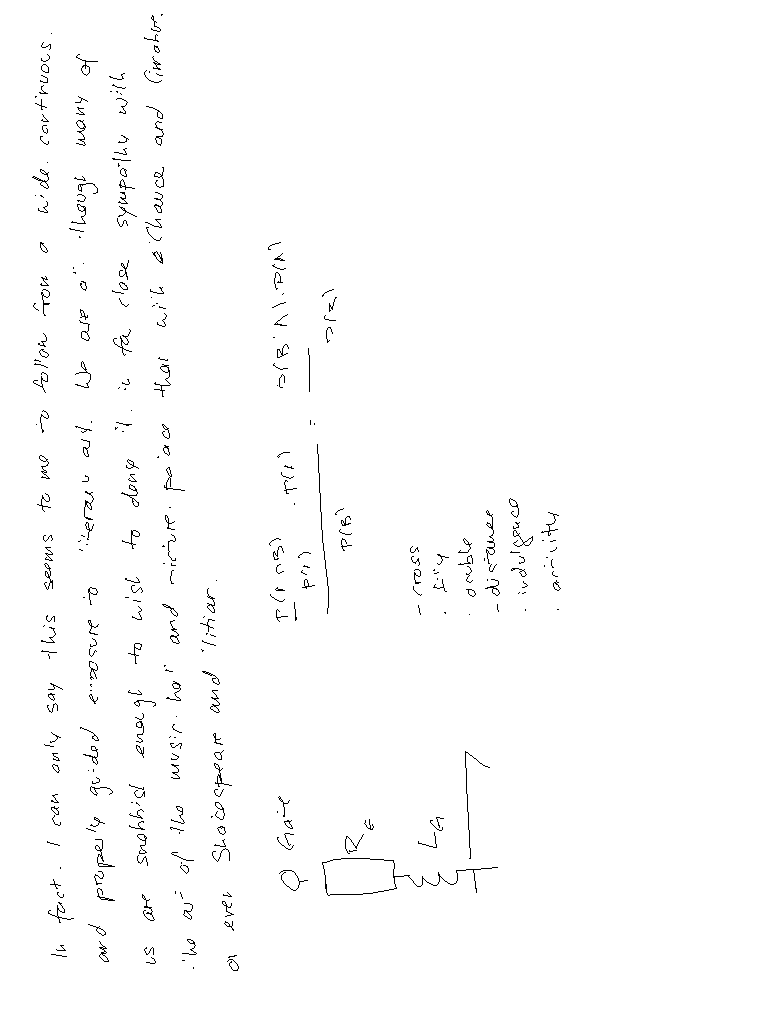 In fact. I can only say this seems to me to follow from a wide. continuous.
and properly guided exposure to literary art. We are all. though many of
us are snobbish enough to wish to deny it. in far close sympathy with
the art of the music. hall and picture. palace than with Chaucer and Cimabue.
or even Shakespeare and Titian.
P(A∩B) . P(A) = P(B|A).P(A)
P(A)
P(B) P(B)
Gate
R_G
L_G
- cross
- distance
. indulgence